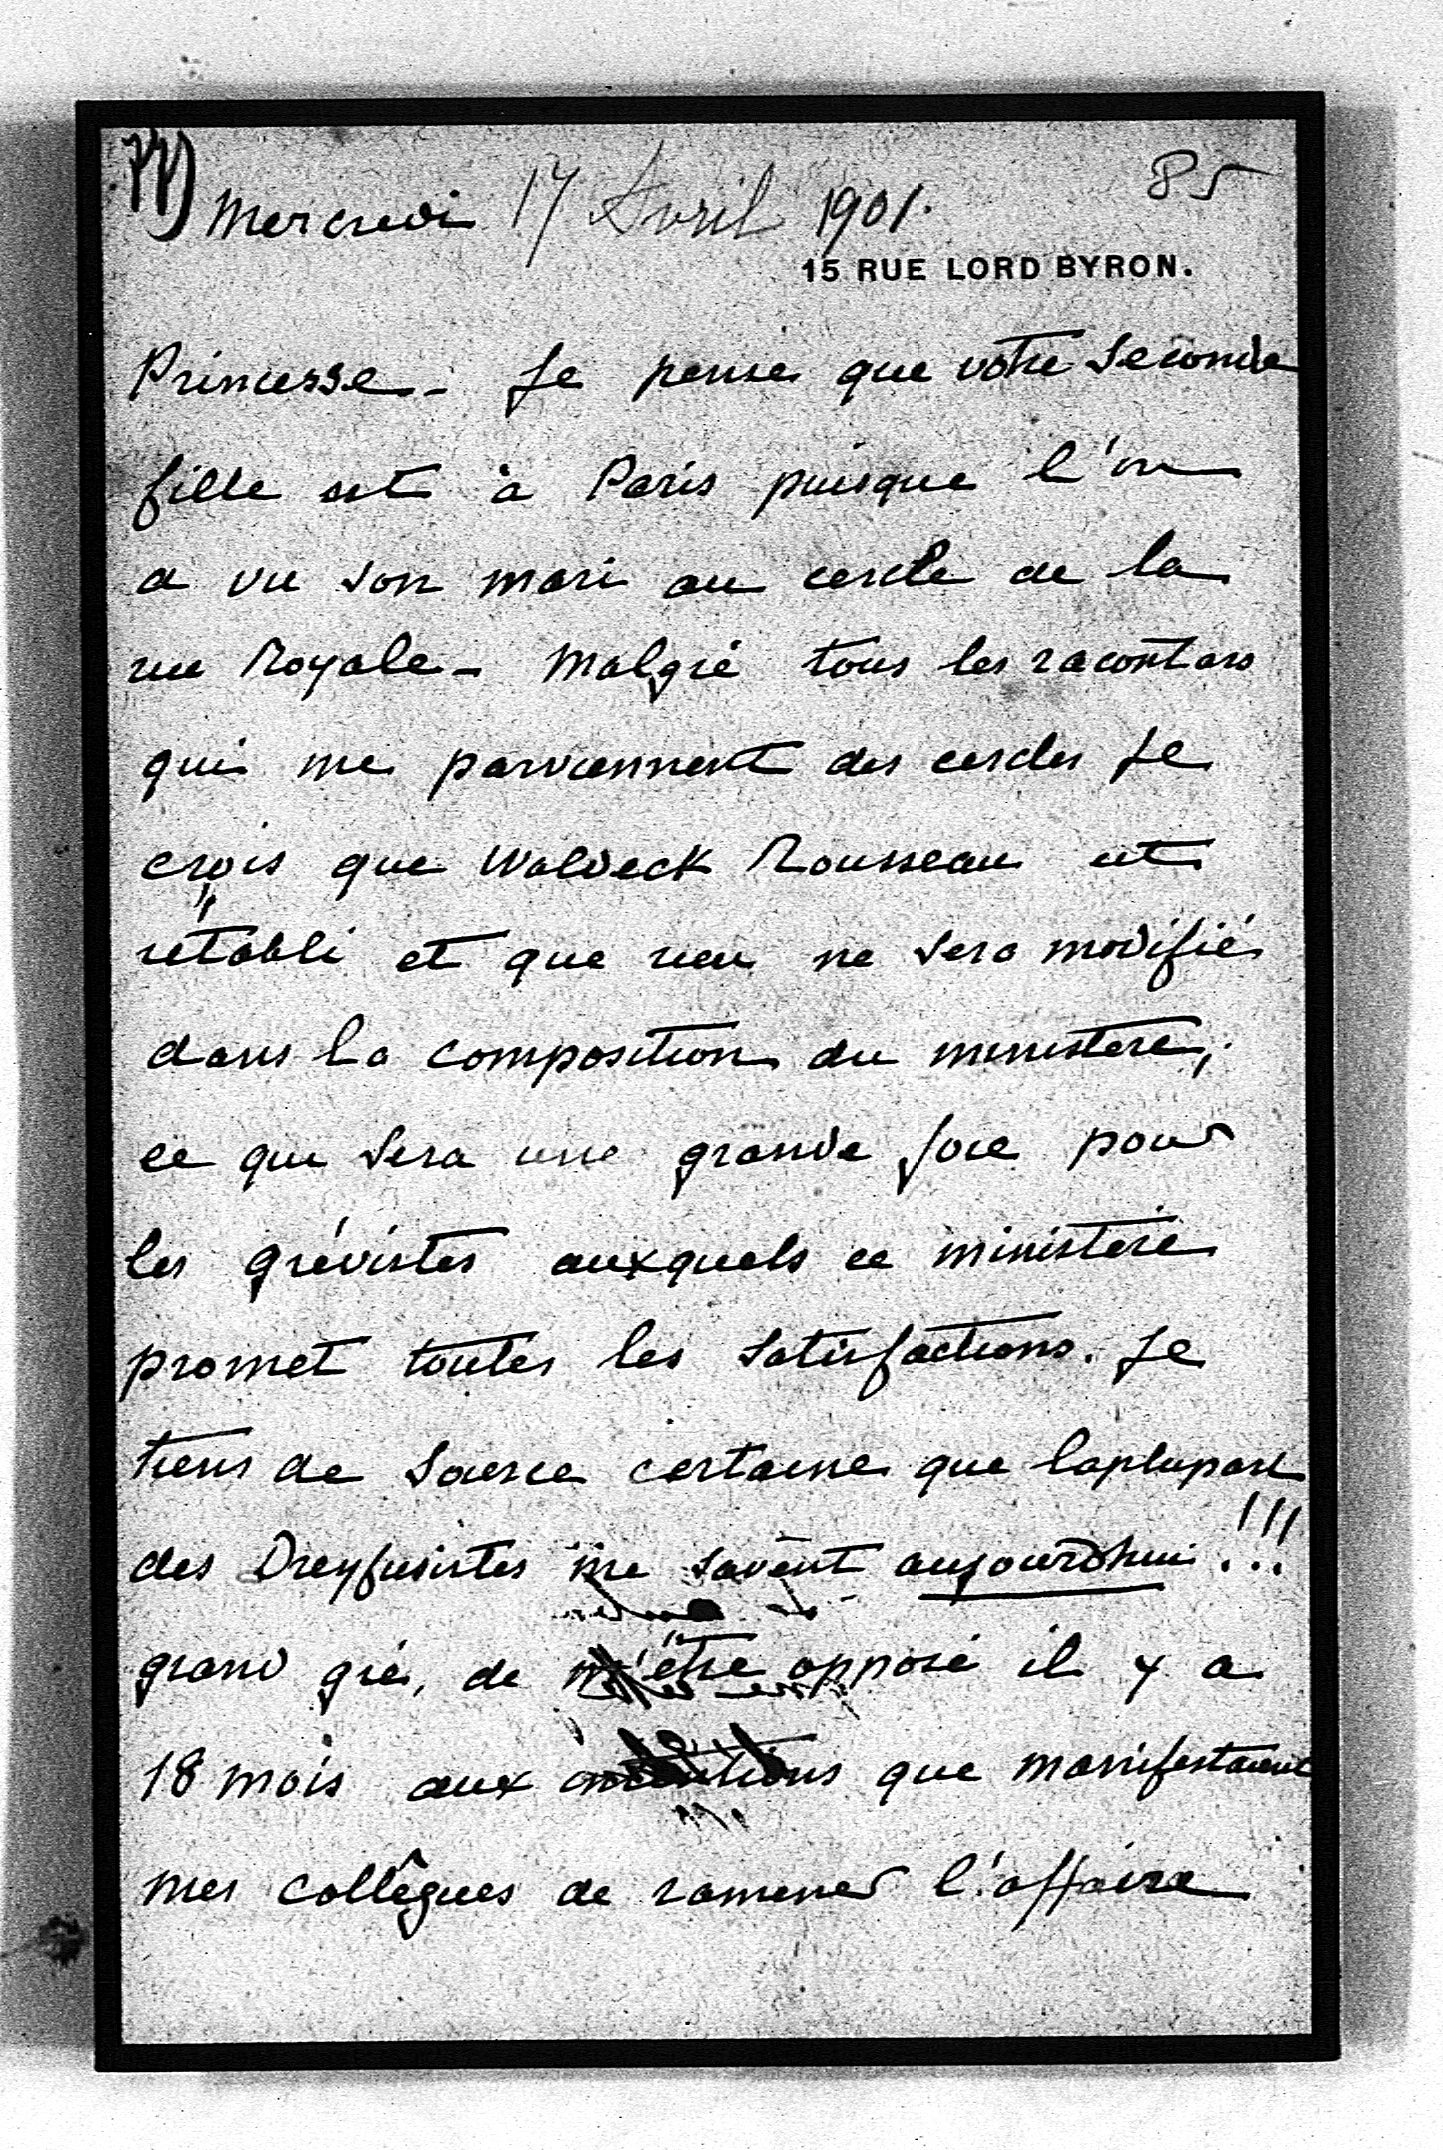 85
Mercredi 17 Avril 1901.
15 RUE LORD BYRON.
Princesse - Je pense que votre seconde
fille est à Paris puisque l'on
a vu son mari au cercle de la
rue Royale - Malgré tous les racontars
qui me parviennent des cercles je
crois que Waldeck Rousseau est
rétabli et que rien ne sera modifié
dans la composition du ministère,
ce qui sera une grande joie pour
les grévistes auxquels ce ministère
promet toutes les satisfactions. Je
tiens de source certaine que la plupart
des Dreyfusistes me savent aujourdhui!!!
grand gré, de m'être opposé il y a
18 mois aux intentions que manifestaient
mes collègues de ramener l'affaire